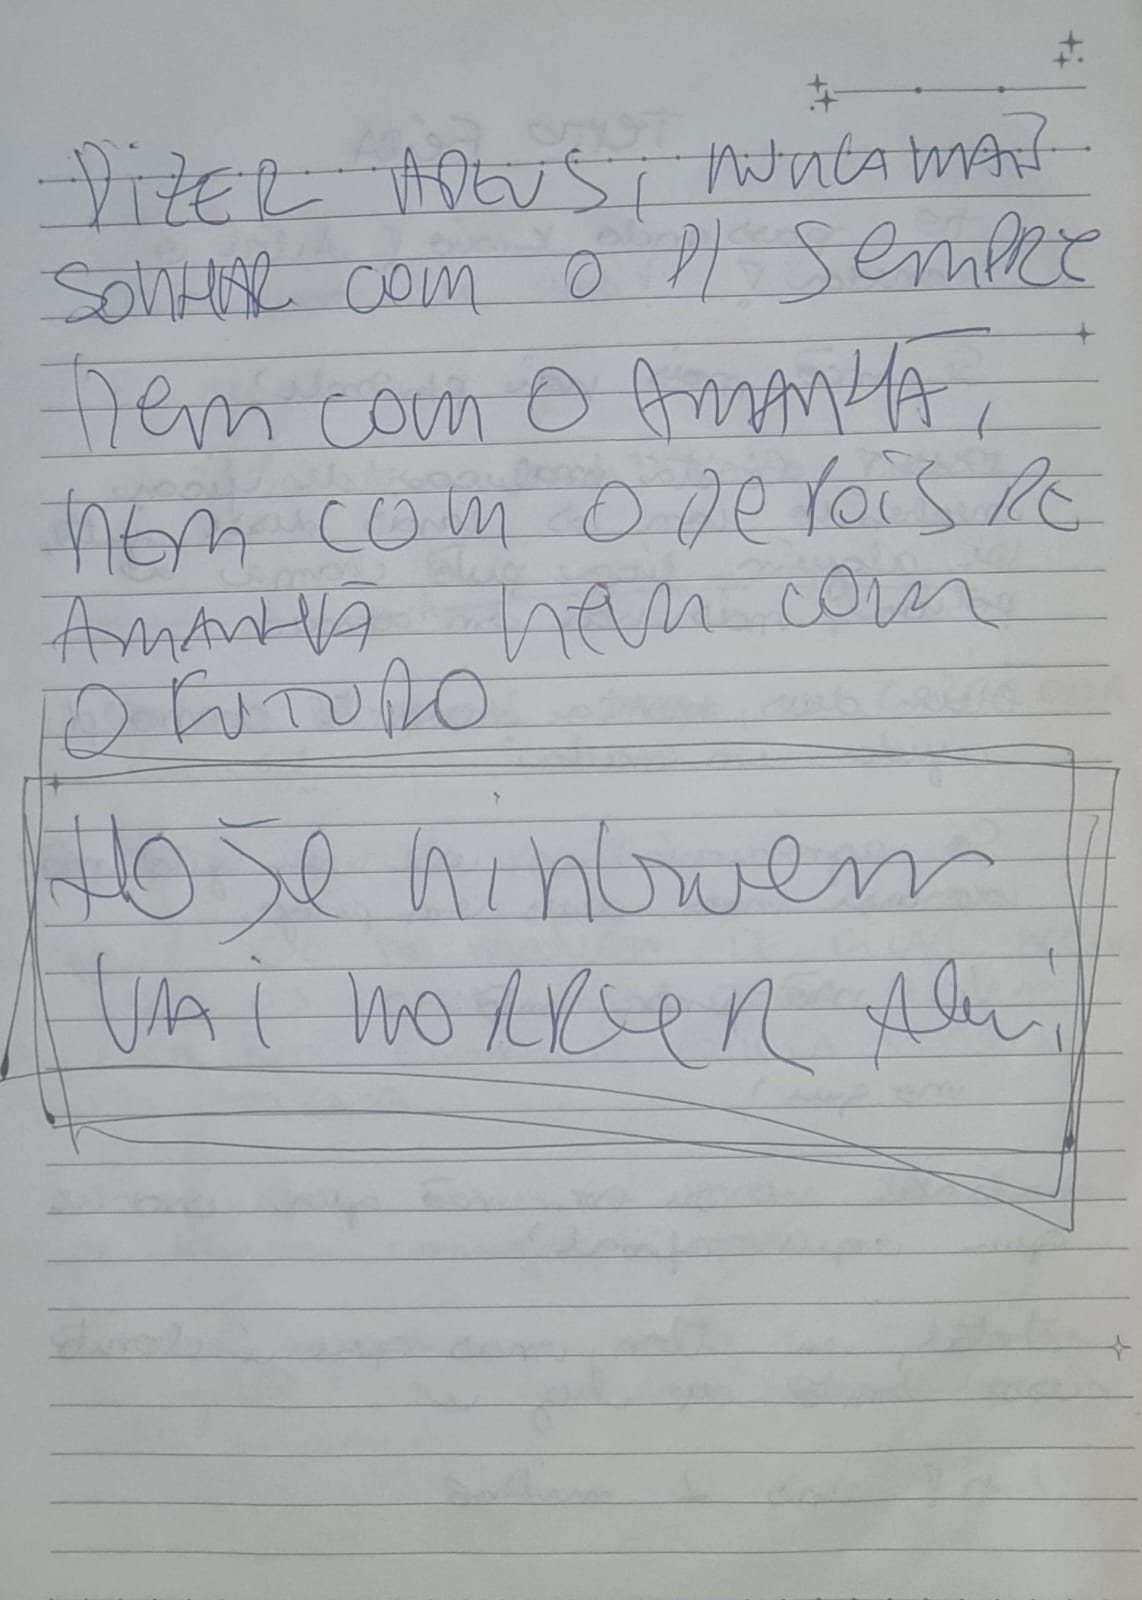 DizER ADEUS, NUNCA MAIS
SONHAR com o P/ Sempre
Nem com O AMANHÃ,
Nem com O DePois De
AMANHÃ Nem com
O FUTURO
Hoje Ninguem
VAi moRReR